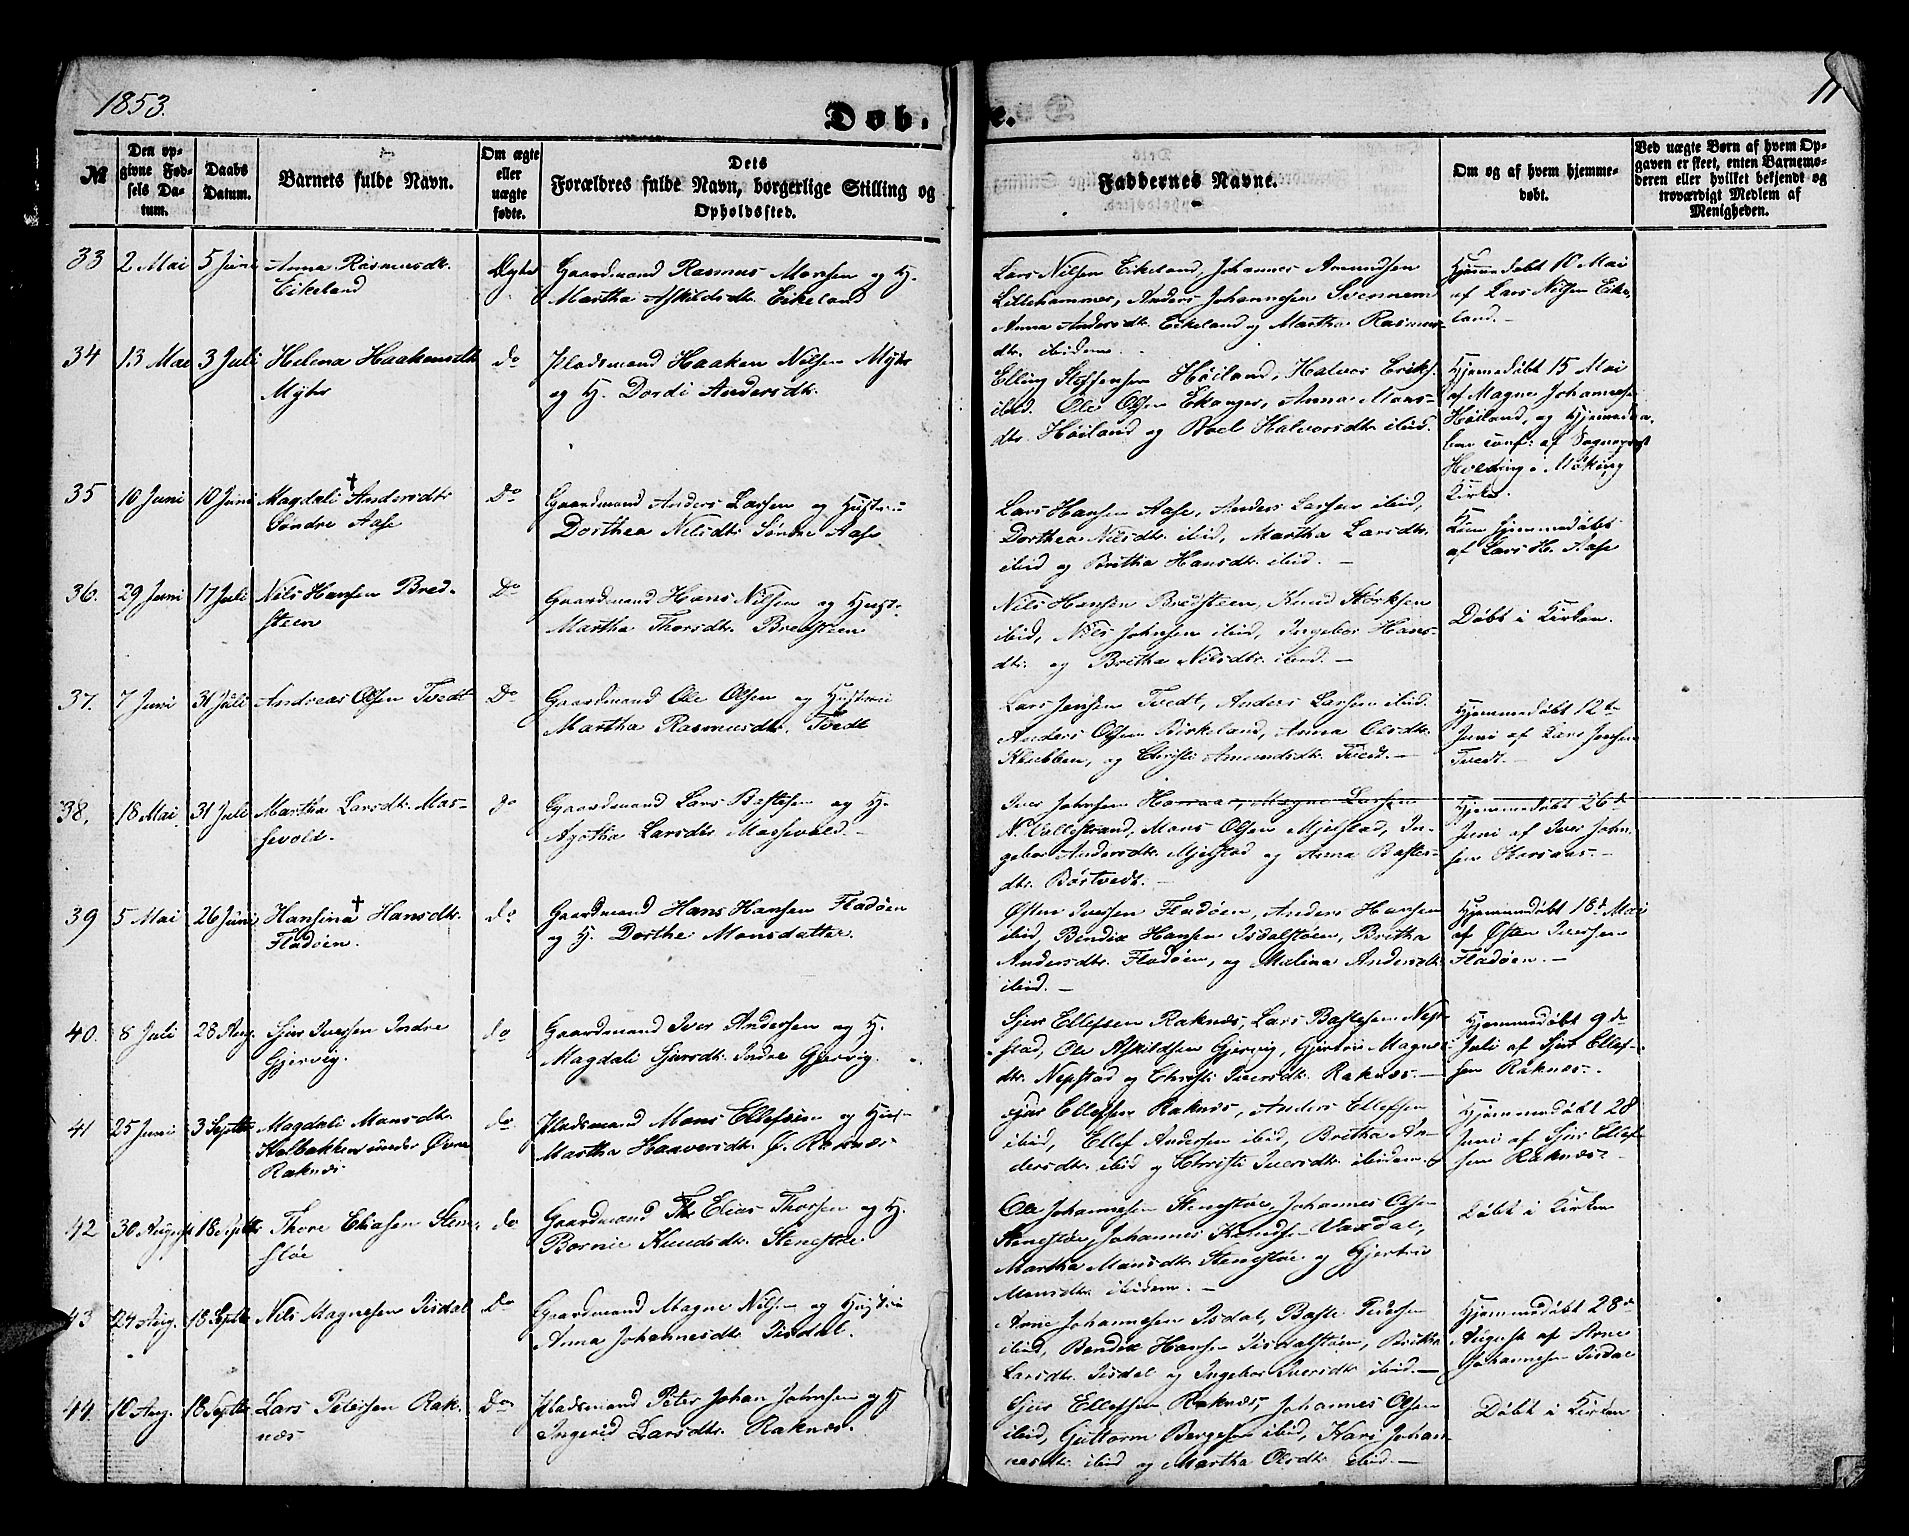 1853.
Døb.
e.
11
№
Den op-
givne Fød-
sels Da-
tum.
Daabs
Datum.
Barnets fulde Navn.
Om ægte
eller
uægte
fødte.
Dets
Forældres fulde Navn, borgerlige Stilling og
Opholdssted.
Faddernes Navne.
Om og af hvem hjemme-
døbt.
Ved uægte Børn af hvem Op-
gaven er skeet, enten Barnemo-
deren eller hvilket bekjendt og
troværdigt Medlem af
Menigheden.
33 2 Mai 5 Juni Anna Rasmusdt.
Eikeland
Ægte
Gaardmand Rasmus Monsen og H.
Martha Askildsdt. Eikeland
Lars Nilsen Eikeland, Johannes Amundsen
Lillehammer, Anders Johannesen
Anna Andersdt. Eikeland og Martha Rasmus-
dt. ibidem.
Hjemmedøbt 10 Mai
af Lars Nilsen Eike-
land.
34 13 Mai 3 Juli Helena Haakensdt.
Myhr
do
Pladsmand Haaken Nilsen Myhr
og H. Dordi Andersdt.
Elling Steffensen Høiland, Halvor Eriks.
ibid. Ole Olsen Ekanger, Anna Mons-
dt. Høiland og Boel Halvorsdt. ibid.
Hjemmedøbt 15 Mai
af Magne Johannesen
Høiland, og Hjemmedaa-
ben conf: af Sognepræst
i Mosking
Kirke.
35 10 Juni 10 Juni Magdali † Andersdt.
Søndre Aase
Do
Gaardmand Anders Larsen og Hustru
Dorthea Nilsdt. Søndre Aase
Lars Hansen Aase, Anders Larsen ibid,
Dorthea Nilsdt. ibid, Martha Larsdt.
ibid og Britha Hansdt. ibid. —
Kun hjemmedøbt
af Lars H. Aase
36. 29 Juni 17 Juli Nils Hansen Bred-
steen
Do
Gaardmand Hans Nilsen og Hust.
Martha Thorsdt. Bredsteen
Nils Hansen Bredsteen, Knud Størksen
ibid, Nils Johnsen ibid, Ingebor Hans-
dt. og Britha Nilsdt. ibid. —
Døbt i Kirken.
37. 7 Juni 31 Juli Andreas Olsen Tvedt
Do
Gaardmand Ole Olsen og Hustru
Martha Rasmusdt. Tvedt
Lars Jensen Tvedt, Anders Larsen ibid.
Anders Olsen Birkeland, Anna Olsdt.
Klubben, og Christi Amundsdt. Tvedt. —
Hjemmedøbt 12te
Juni af Lars Jensen
Tvedt.
38. 18 Mai 31 Juli Martha Larsdt. Mas-
sevold.
do
Gaardmand Lars Bastesen og H.
Agotha Larsdt. Massevold —
Iver Johnsen Magne Larsen
N. Vallestrand, Mons Olsen Mjelstad, In-
gebor Andersdt. Mjelstad og Anna Bastes-
dt. Børtvedt. —
Hjemmedøbt 26de
Juni af Iver John-
sen
39 5 Mai 26 Juni Hansina † Hansdt.
Fladøen.
do
Gaardmand Hans Hansen Fladøen
og H. Dorthe Monsdatter.
Østen Iversen Fladøen, Anders Hansen
ibid, Bendix Hansen Isdalstøen, Britha
Andersdt. Fladøen, og Malina Andersdt.
ibid. —
Hjemmedøbt 18de Mai
af Østen Iversen
Fladøen. —
40. 8 Juli 28 Aug. Sjur Iversen Indre
Gjervig.
do
Gaardmand Iver Andersen og H.
Magdali Sjursdt. Indre Gjervig.
Sjur Ellefsen Raknæs, Lars Bastesen Nep-
stad, Ole Askildsen Gjervig, Gjertrue Magnes
dt. Nepstad og Christi Iversdt. Raknæs. —
Hjemmedøbt 9de
Juli af Sjur Ellef-
sen Raknæs.
41 25 Juni 3 Septbr Magdali Monsdt.
Kolbakken under Øvre
Raknæs
do
Pladsmand Mons Ellefsen og Hust.
Martha Haaversdt. Ø. Raknæs
Sjur Ellefsen Raknæs, Anders Ellefsen
ibid, Ellef Andersen ibid, Britha An-
dersdt. ibid og Christi Iversdt. ibidem.
Hjemmedøbt 28
Juni af Sjur Ellef-
sen Raknæs.
42 30 August 18 Septbr Thore Eliasen Sten-
støe
do
Gaardmand Elias Thorsen og H.
Knudsdt. Stenestøe.
Ole Johannesen Stenestøe, Johannes Olsen
Stenestøe, Johannes Knudsen Vaxdal,
Martha Monsdt. Stenestøe og Gjertrue
Monsdt. ibidem. —
Døbt i Kirken
43 24 Aug. 18 Septbr Nils Magnesen Iisdal
Do
Gaardmand Magne Nilsen og Hustru
Anna Johannesdt. Iisdal.
Arne Johannesen Isdal, Baste Pedersen
ibid, Bendix Hansen Iisdalstøen, Britha
Larsdt. Iisdal og Ingebor Iversdt. ibid. —
Hjemmedøbt 28de
August af Arne
Johannesen Iisdal
44. 10 Aug. 18 Septbr Lars Petersen Rak-
næs
Do
Pladsmand Peter Johan Johnsen og H
Ingerid Larsdt. Raknæs.
Sjur Ellefsen Raknæs, Johannes Olsen
ibid, Guttorm Bergesen ibid, Kari Johan-
nesdt. ibid og Martha Olsdt. ibid. —
Døbt i Kirken